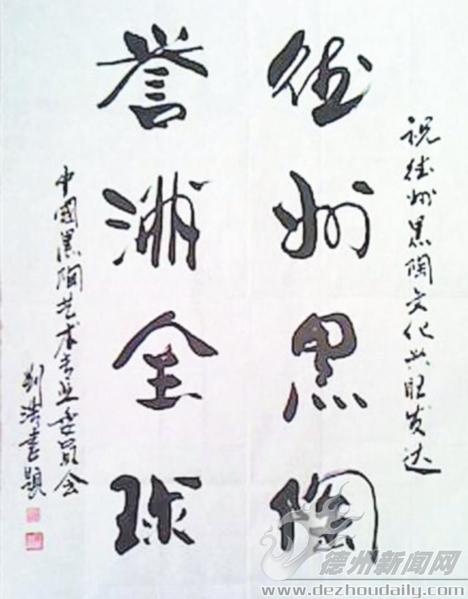 祝德州黑陶文化兴旺发达
德州黑陶
誉满全球
中國黑陶艺术专业委员会
刘涛書題
德州新闻网
www.dezhoudaily.com